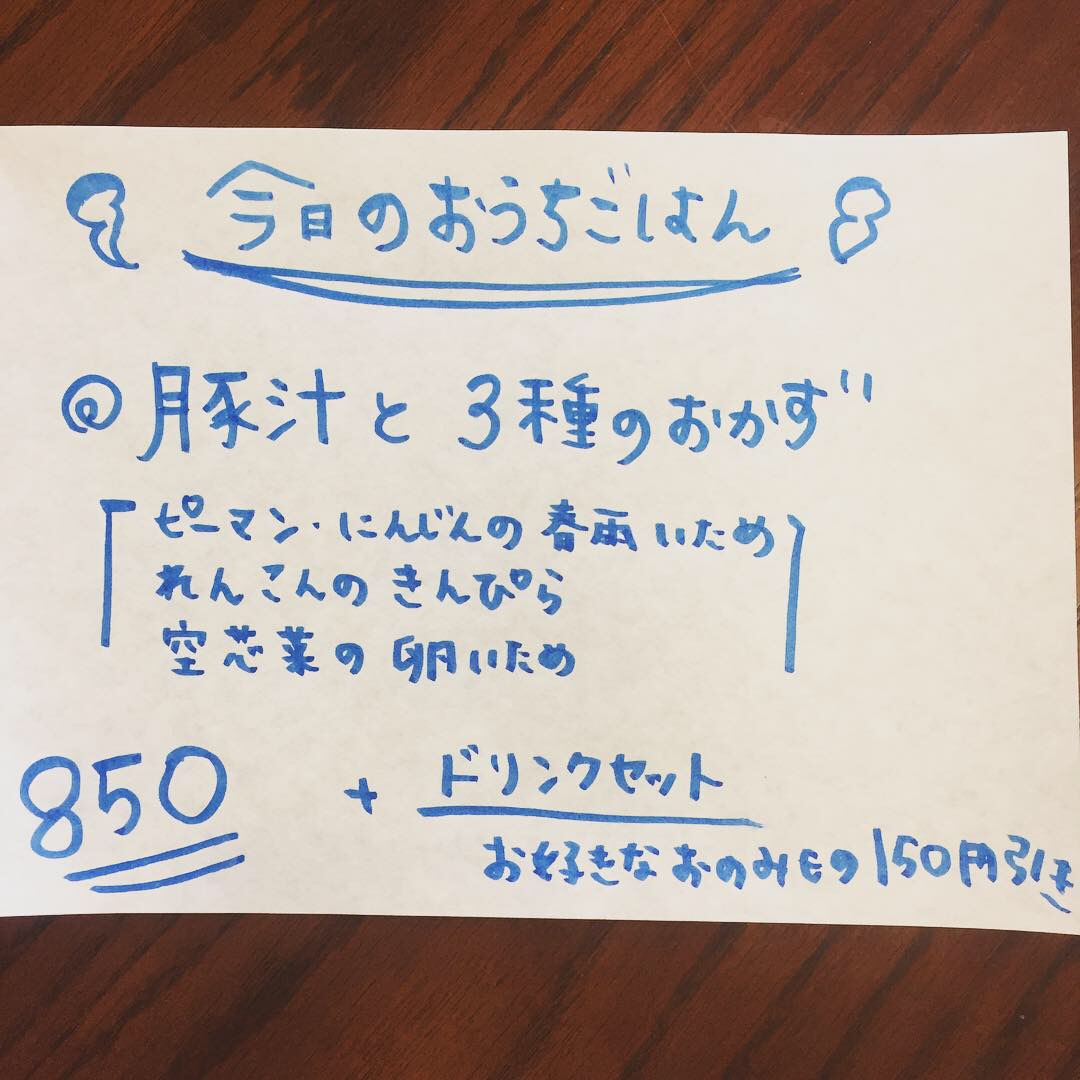 今日のおうちごはん
@豚汁と3種のおかず
ピーマン・にんじんの春雨いため
れんこんのきんぴら
空芯菜の卵いため
850 + ドリンクセット
お好きなおのみもの150円引き